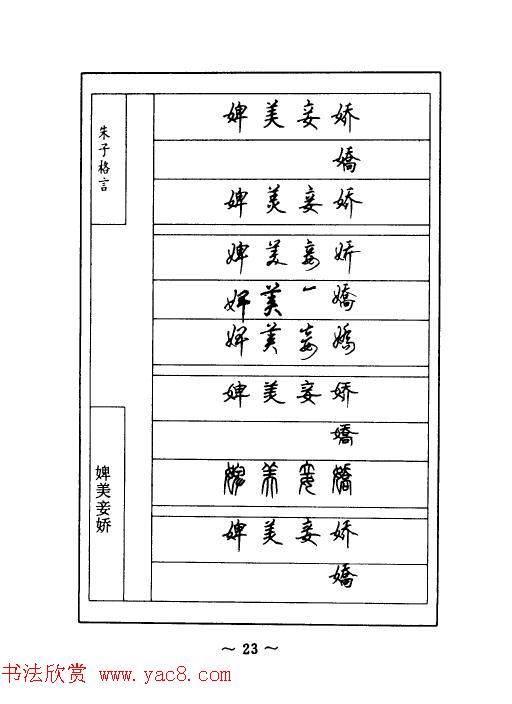 朱子格言
婢美妾娇
婢美妾娇
嬌
婢美妾娇
婢美妾娇
婢美 嬌
婢美妾嬌
婢美妾娇
嬌
婢美妾嬌
婢美妾娇
嬌
~ 23 ~
书法欣赏 www.yac8.com